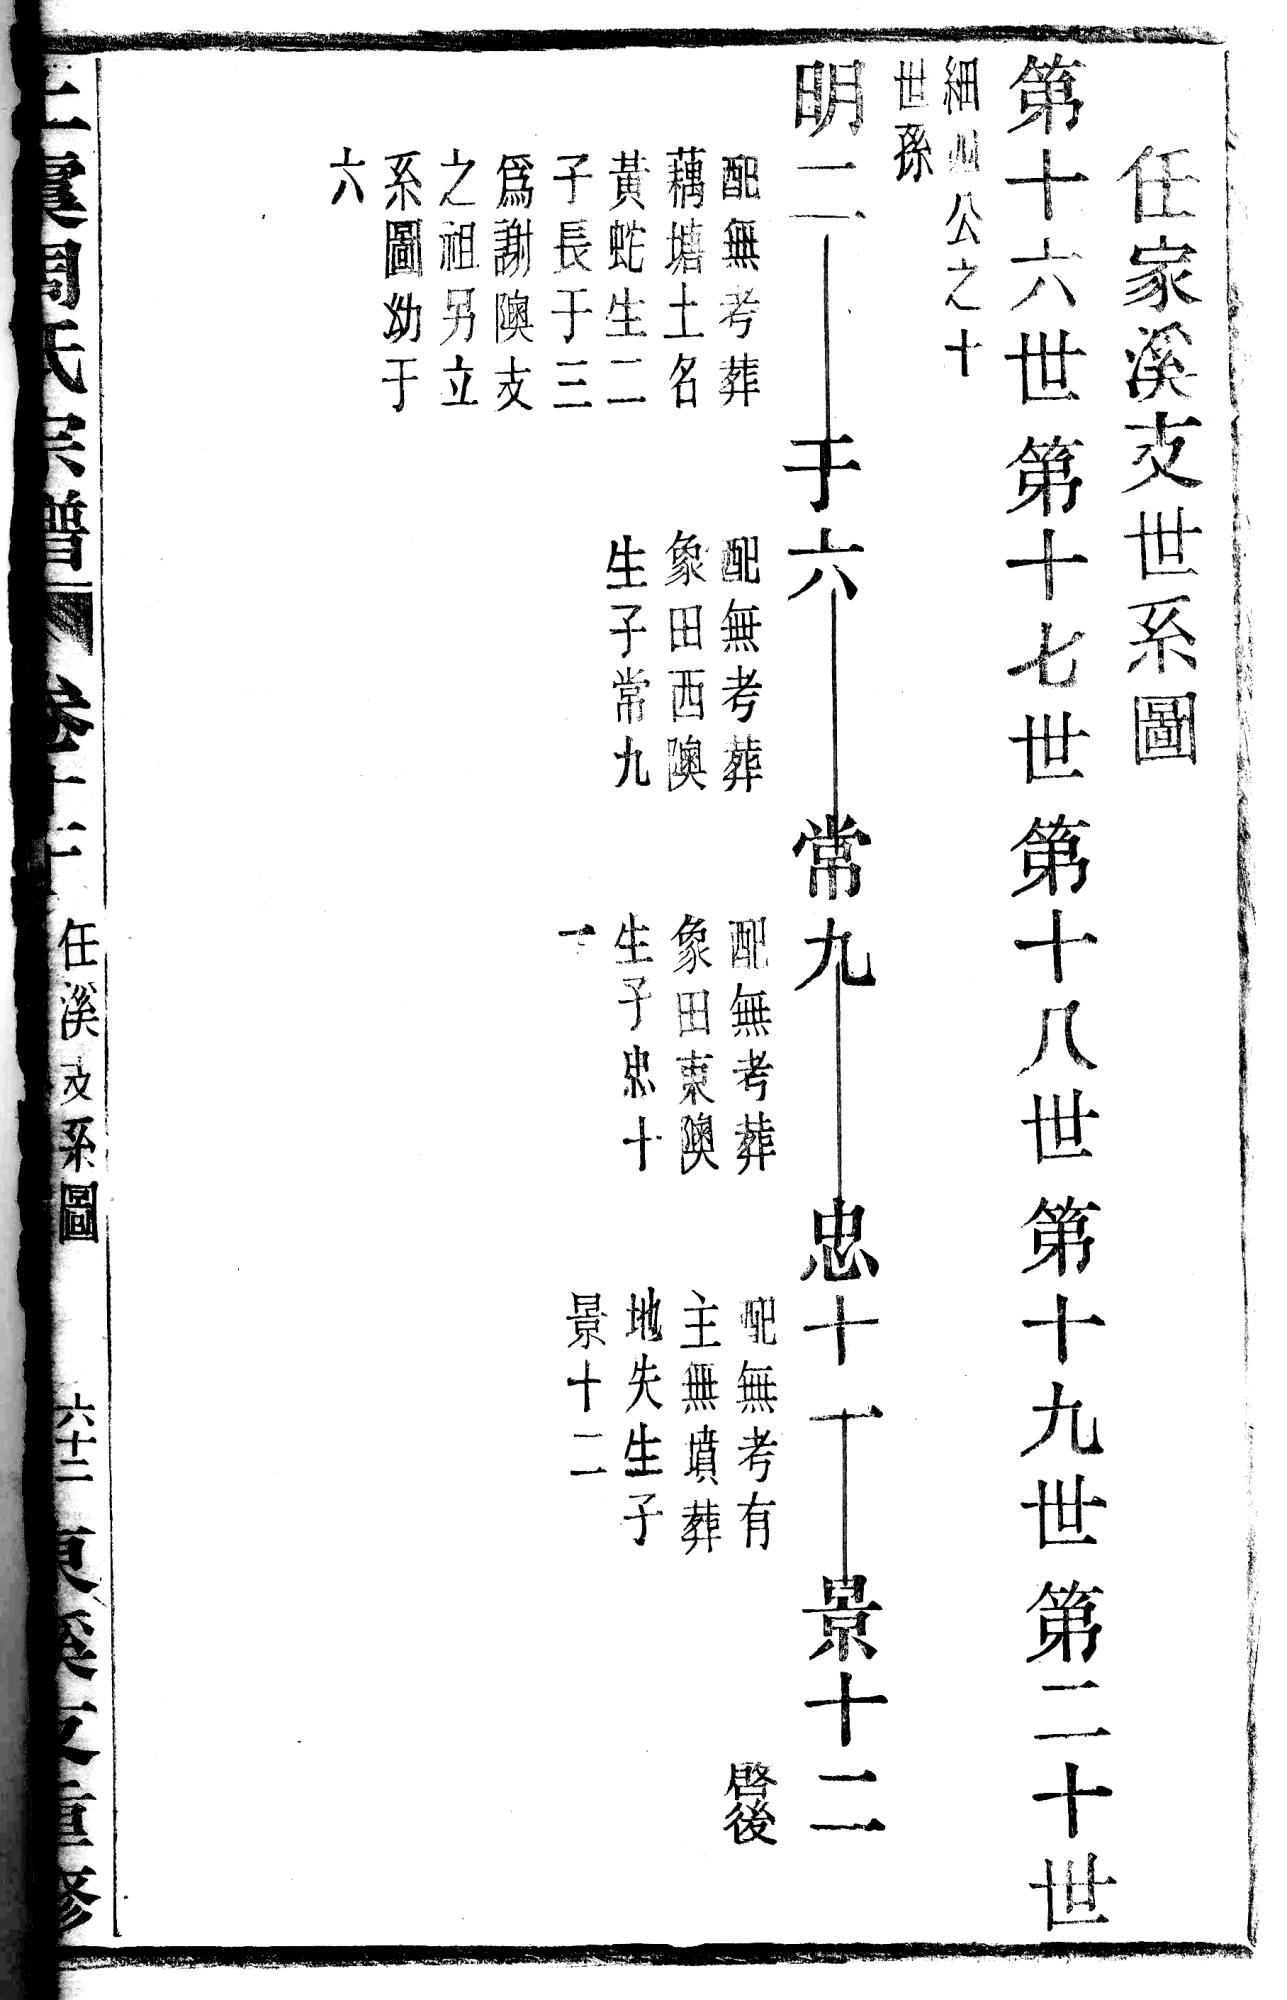 任家溪支世系圖
第十六世 第十七世 第十八世 第十九世 第二十世
細四公之十
世孫
明二 于六 常九 忠十一 景十二
配無考葬
藕塘土名
黃蛇生二
子長于三
爲謝隩支
之祖另立
系圖幼于
六
配無考葬
象田西隩
生子常九
配無考葬
象田東隩
生子忠十
一
配無考有
主無墳葬
地失生子
景十二
啓後
上虞周氏宗譜
任溪支系圖
六十二
東溪支重修